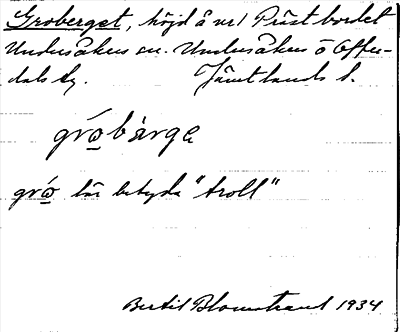 Groberget, höjd å ve/ Prästbordet
Undersåkers sn. Undersåkers o Offer-
dals tg. Jämtlands l.
grọ́bärge
grọ́ lär betyda "troll"
Bertil Blomstrand 1934